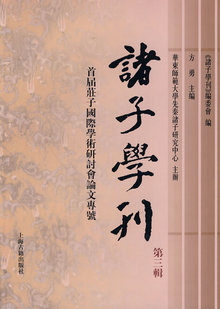 《諸子學刊》編委會 編
方 勇 主編
華東師範大學先秦諸子研究中心 主辦
諸子學刊
第三輯
首屆莊子國際學術研討會論文專號
上海古籍出版社